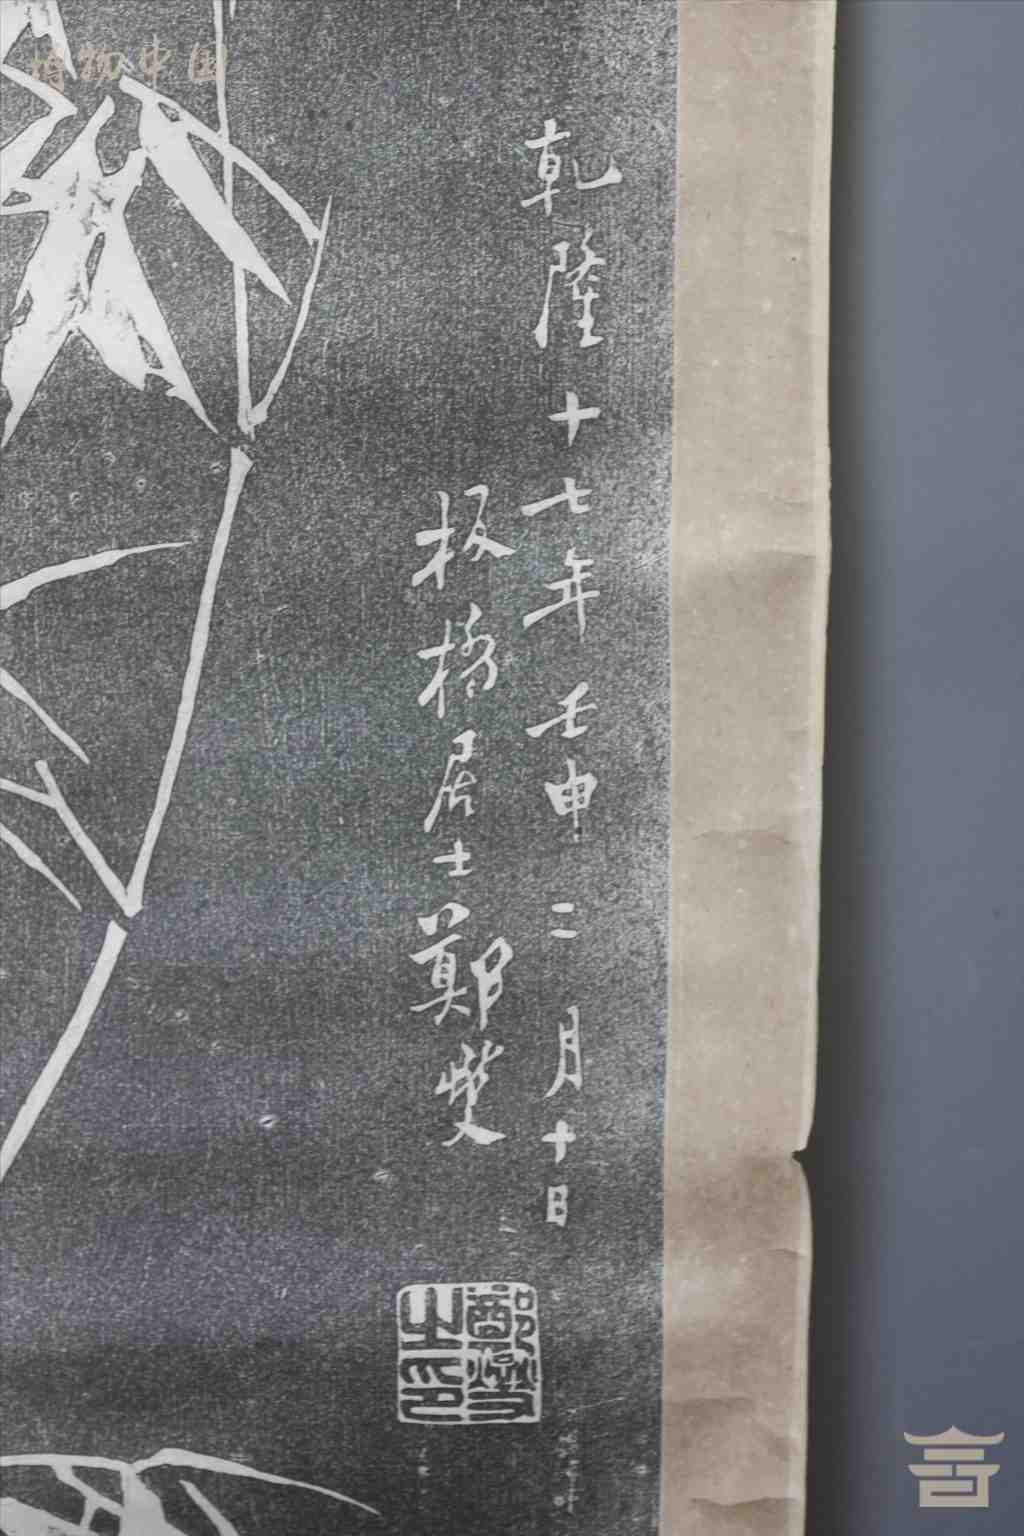 博物中国
乾隆十七年壬申二月十日
板橋居士鄭燮
鄭燮之印